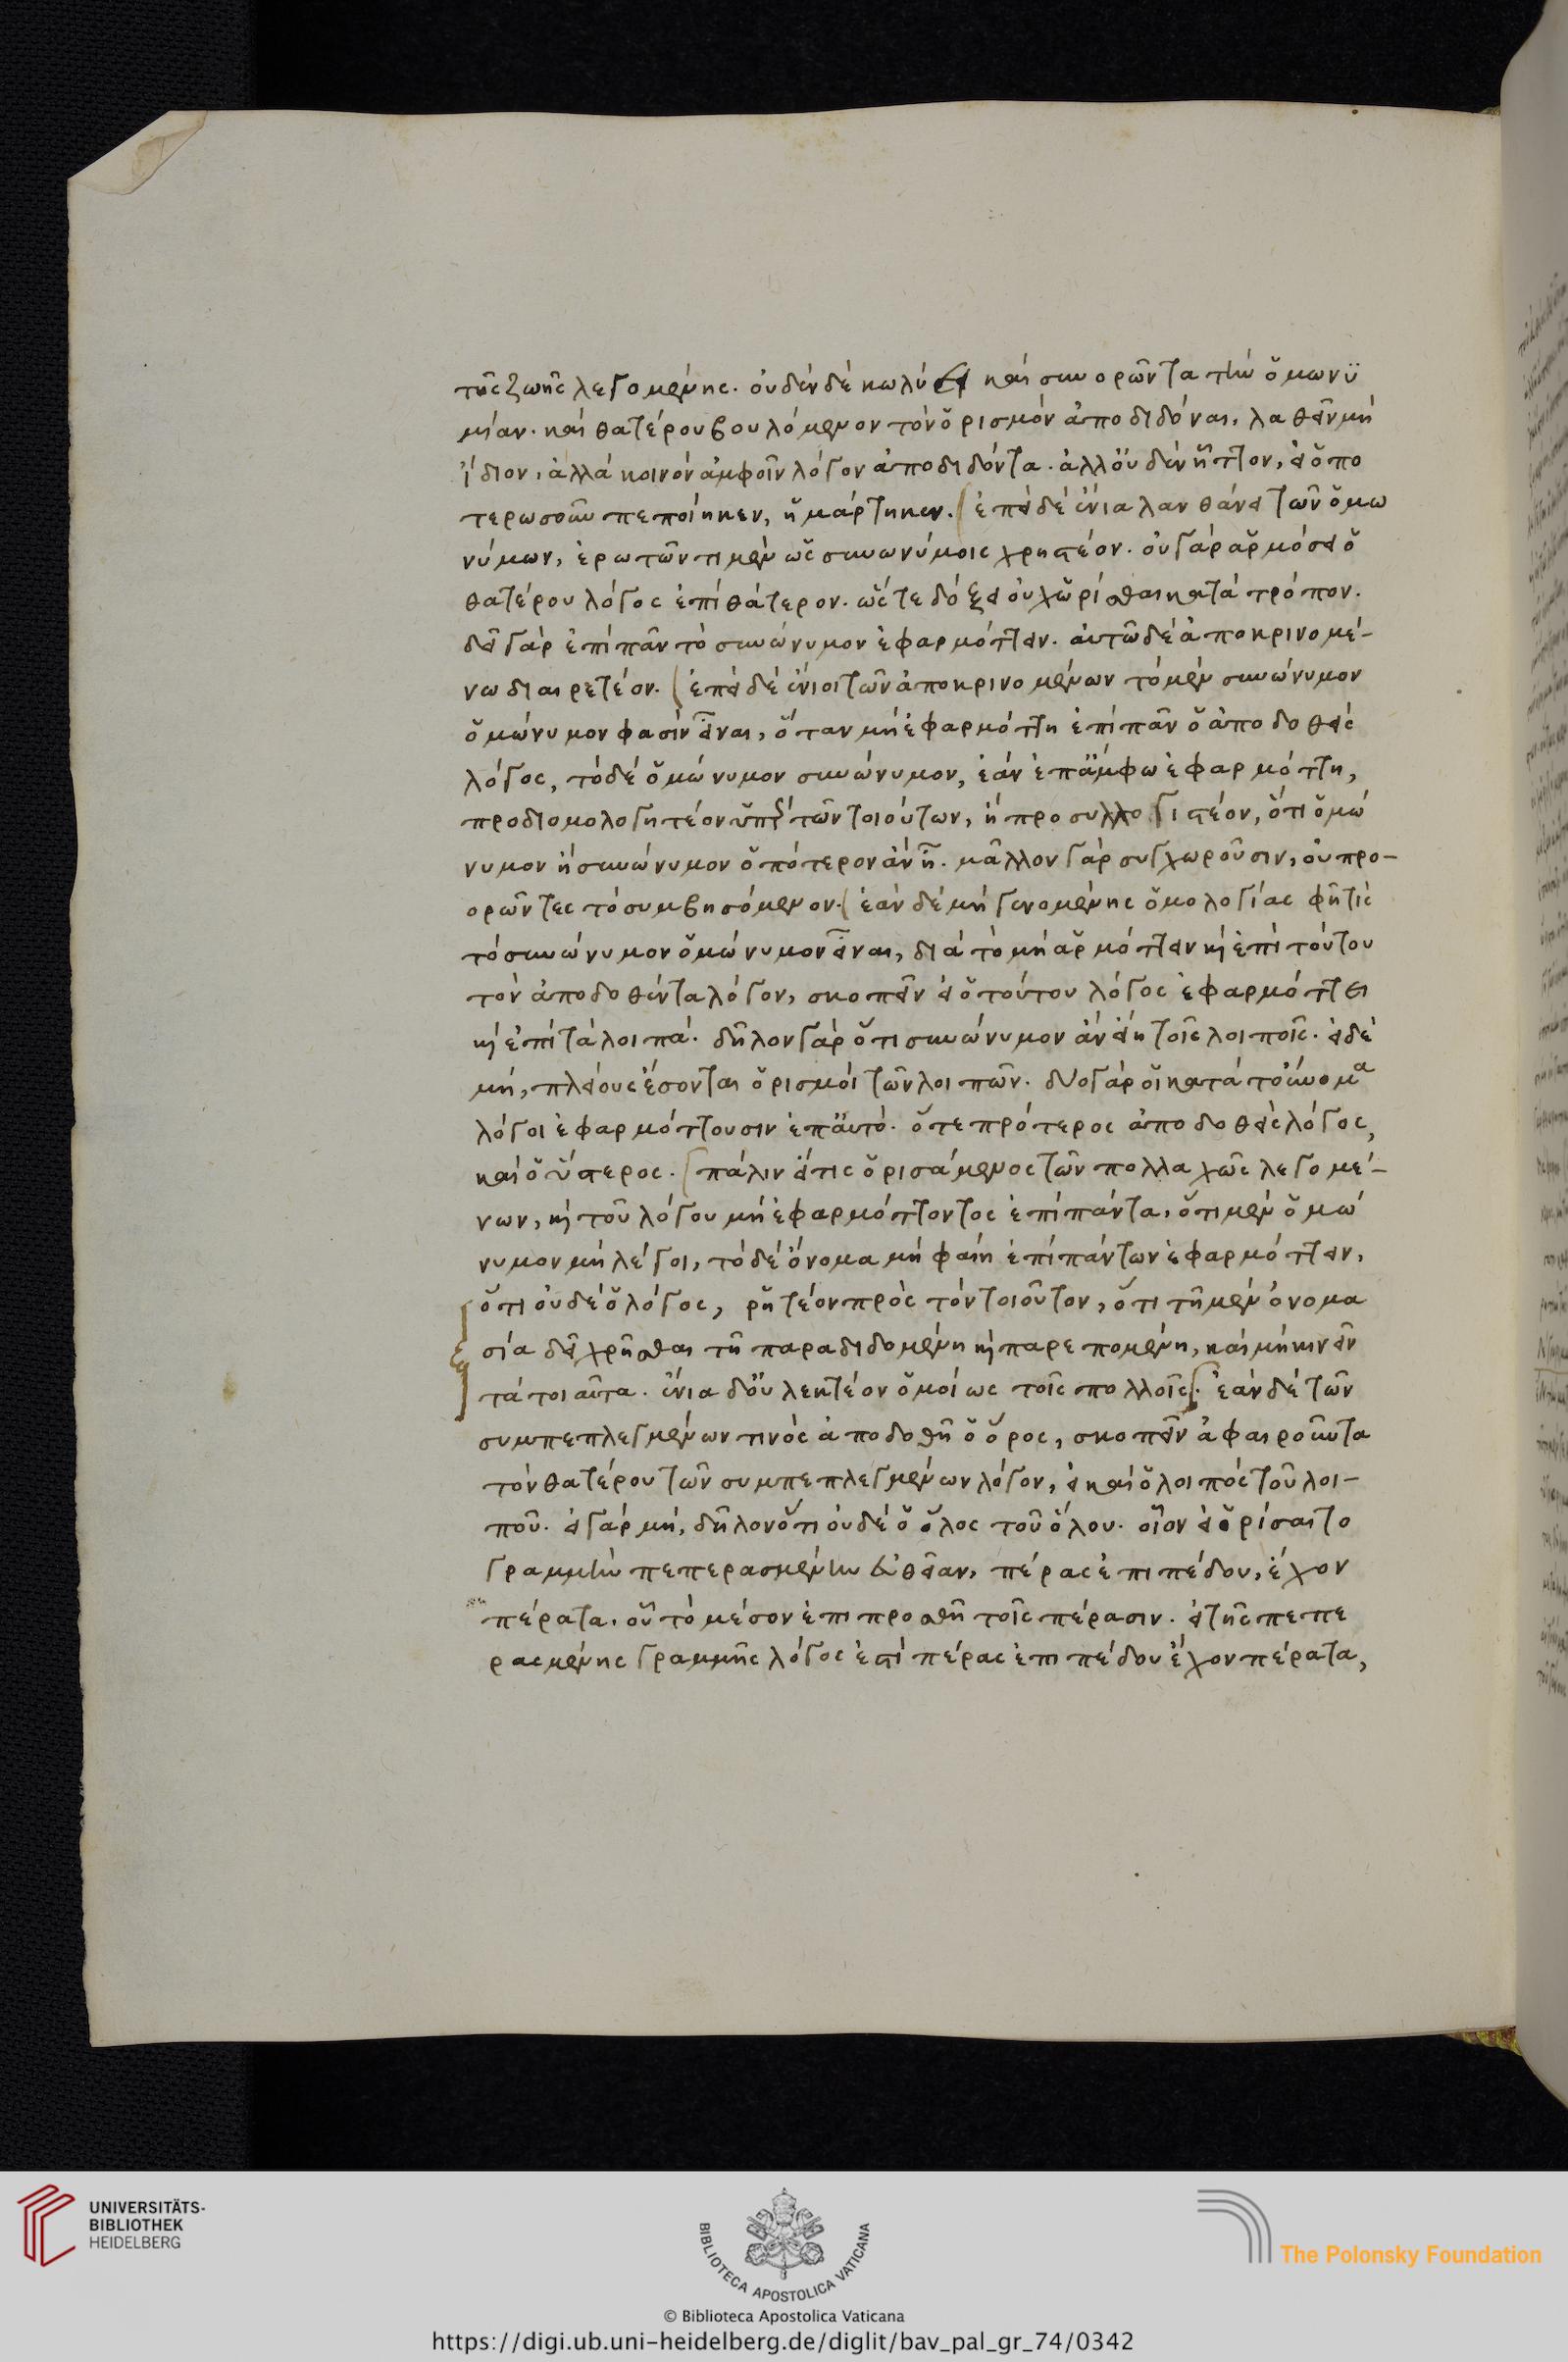 τῆς ζωῆς λεγομένης. οὐδὲν δὲ κωλύει καὶ συνορῶντα τὴν ὁμωνϋ
μίαν. καὶ θατέρου βουλόμενον τὸν ὁρισμὸν ἀποδιδόναι, λαθεῖν μὴ
ἴδιον, ἀλλὰ κοινὸν ἀμφοῖν λόγον ἀποδιδόντα. ἀλλ' οὐδὲν ἧττον, εἰ ὁπο
τερωσοῦν πεποίηκεν, ἡμάρτηκεν. ἐπεὶ δὲ ἔνια λανθάνει τῶν ὁμω
νύμων, ἐρωτῶντι μὲν ὡς συνωνύμοις χρηστέον. οὐ γὰρ ἁρμόσει ὁ
θατέρου λόγος ἐπὶ θάτερον. ὥστε δόξει οὐχ ὡρίσθαι κατὰ τρόπον.
δεῖ γὰρ ἐπὶ πᾶν τὸ συνώνυμον ἐφαρμόττειν. αὐτῶ δὲ ἀποκρινομέ-
νω διαιρετέον. ἐπεὶ δὲ ἔνιοι τῶν ἀποκρινομένων τὸ μὲν συνώνυμον
ὁμώνυμον φασὶν εἶναι, ὅταν μὴ ἐφαρμόττη ἐπὶ πᾶν ὁ ἀποδοθεὶς
λόγος, τὸ δὲ ὁμώνυμον συνώνυμον, ἐὰν ἐπ' ἄμφω ἐφαρμόττη,
προδιομολογητέον ὑπὲρ τῶν τοιούτων, ἢ προσυλλογιστέον, ὅτι ὁμώ
νυμον ἢ συνώνυμον ὁπότερον ἂν ἦ. μᾶλλον γὰρ συγχωροῦσιν, οὐ προ-
ορῶντες τὸ συμβησόμενον. ἐὰν δὲ μὴ γενομένης ὁμολογίας φῆ τὶς
τὸ συνώνυμον ὁμώνυμον εἶναι, διὰ τὸ μὴ ἁρμόττειν κὴ ἐπὶ τούτου
τὸν ἀποδοθέντα λόγον, σκοπεῖν εἰ ὁ τούτου λόγος ἐφαρμόττει
κὴ ἐπὶ τὰ λοιπά. δῆλον γὰρ ὅτι συνώνυμον ἂν εἴη τοῖς λοιποῖς. εἰ δὲ
μή, πλείους ἔσονται ὁρισμοὶ τῶν λοιπῶν. δύο γὰρ οἱ κατὰ τοὔνομα
λόγοι ἐφαρμόττουσιν ἐπ' αὐτό. ὅ τε πρότερος ἀποδοθεὶς λόγος,
καὶ ὁ ὕστερος. πάλιν εἴ τις ὁρισάμενος τῶν πολλαχῶς λεγομέ-
νων, κὴ τοῦ λόγου μὴ ἐφαρμόττοντος ἐπὶ πάντα, ὅτι μὲν ὁμώ
νυμον μὴ λέγοι, τὸ δὲ ὄνομα μὴ φαίη ἐπὶ πάντων ἐφαρμόττειν,
ὅτι οὐδὲ ὁ λόγος, ῥητέον πρὸς τὸν τοιοῦτον, ὅτι τῆ μὲν ὀνομα
σία δεῖ χρῆσθαι τῆ παραδιδομένη κὴ παρεπομένη, καὶ μὴ κινεῖν
τὰ τοιαῦτα. ἔνια δ' οὐ λεκτέον ὁμοίως τοῖς πολλοῖς. ἐὰν δὲ τῶν
συμπεπλεγμένων τινὸς ἀποδοθῆ ὁ ὅρος, σκοπεῖν ἀφαιροῦντα
τὸν θατέρου τῶν συμπεπλεγμένων λόγον, εἰ καὶ ὁ λοιπὸς τοῦ λοι-
ποῦ. εἰ γὰρ μή, δῆλον ὅτι οὐδὲ ὁ ὅλος τοῦ ὅλου. οἷον εἰ ὁρίσαιτο
γραμμὴν πεπερασμένην εὐθεῖαν, πέρας ἐπιπέδου, ἔχον
πέρατα, οὗ τὸ μέσον ἐπιπροσθῆ τοῖς πέρασιν. εἰ τῆς πεπε
ρασμένης γραμμῆς λόγος ἐστὶ πέρας ἐπιπέδου ἔχον πέρατα,
UNIVERSITÄTS-
BIBLIOTHEK
HEIDELBERG
BIBLIOTECA APOSTOLICA VATICANA
The Polonsky Foundation
© Biblioteca Apostolica Vaticana
https://digi.ub.uni-heidelberg.de/diglit/bav_pal_gr_74/0342